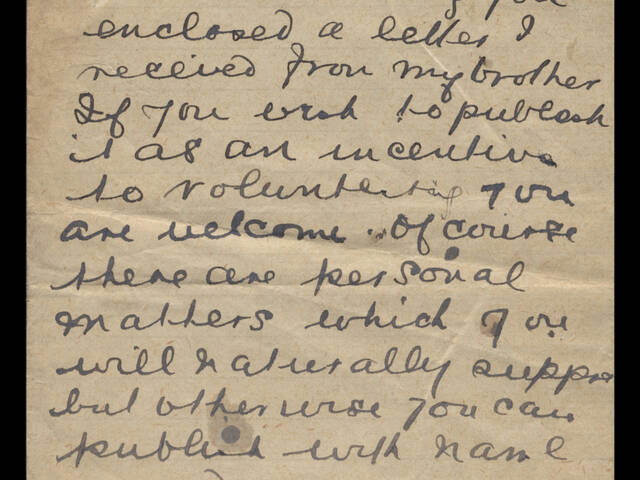 you
enclosed a letter I
received from my brother
If you wish to publish
it as an incentive
to volunteering you
are welcome. Of course
there are personal
matters which you
will naturally suppre
but otherwise you can
publish with name